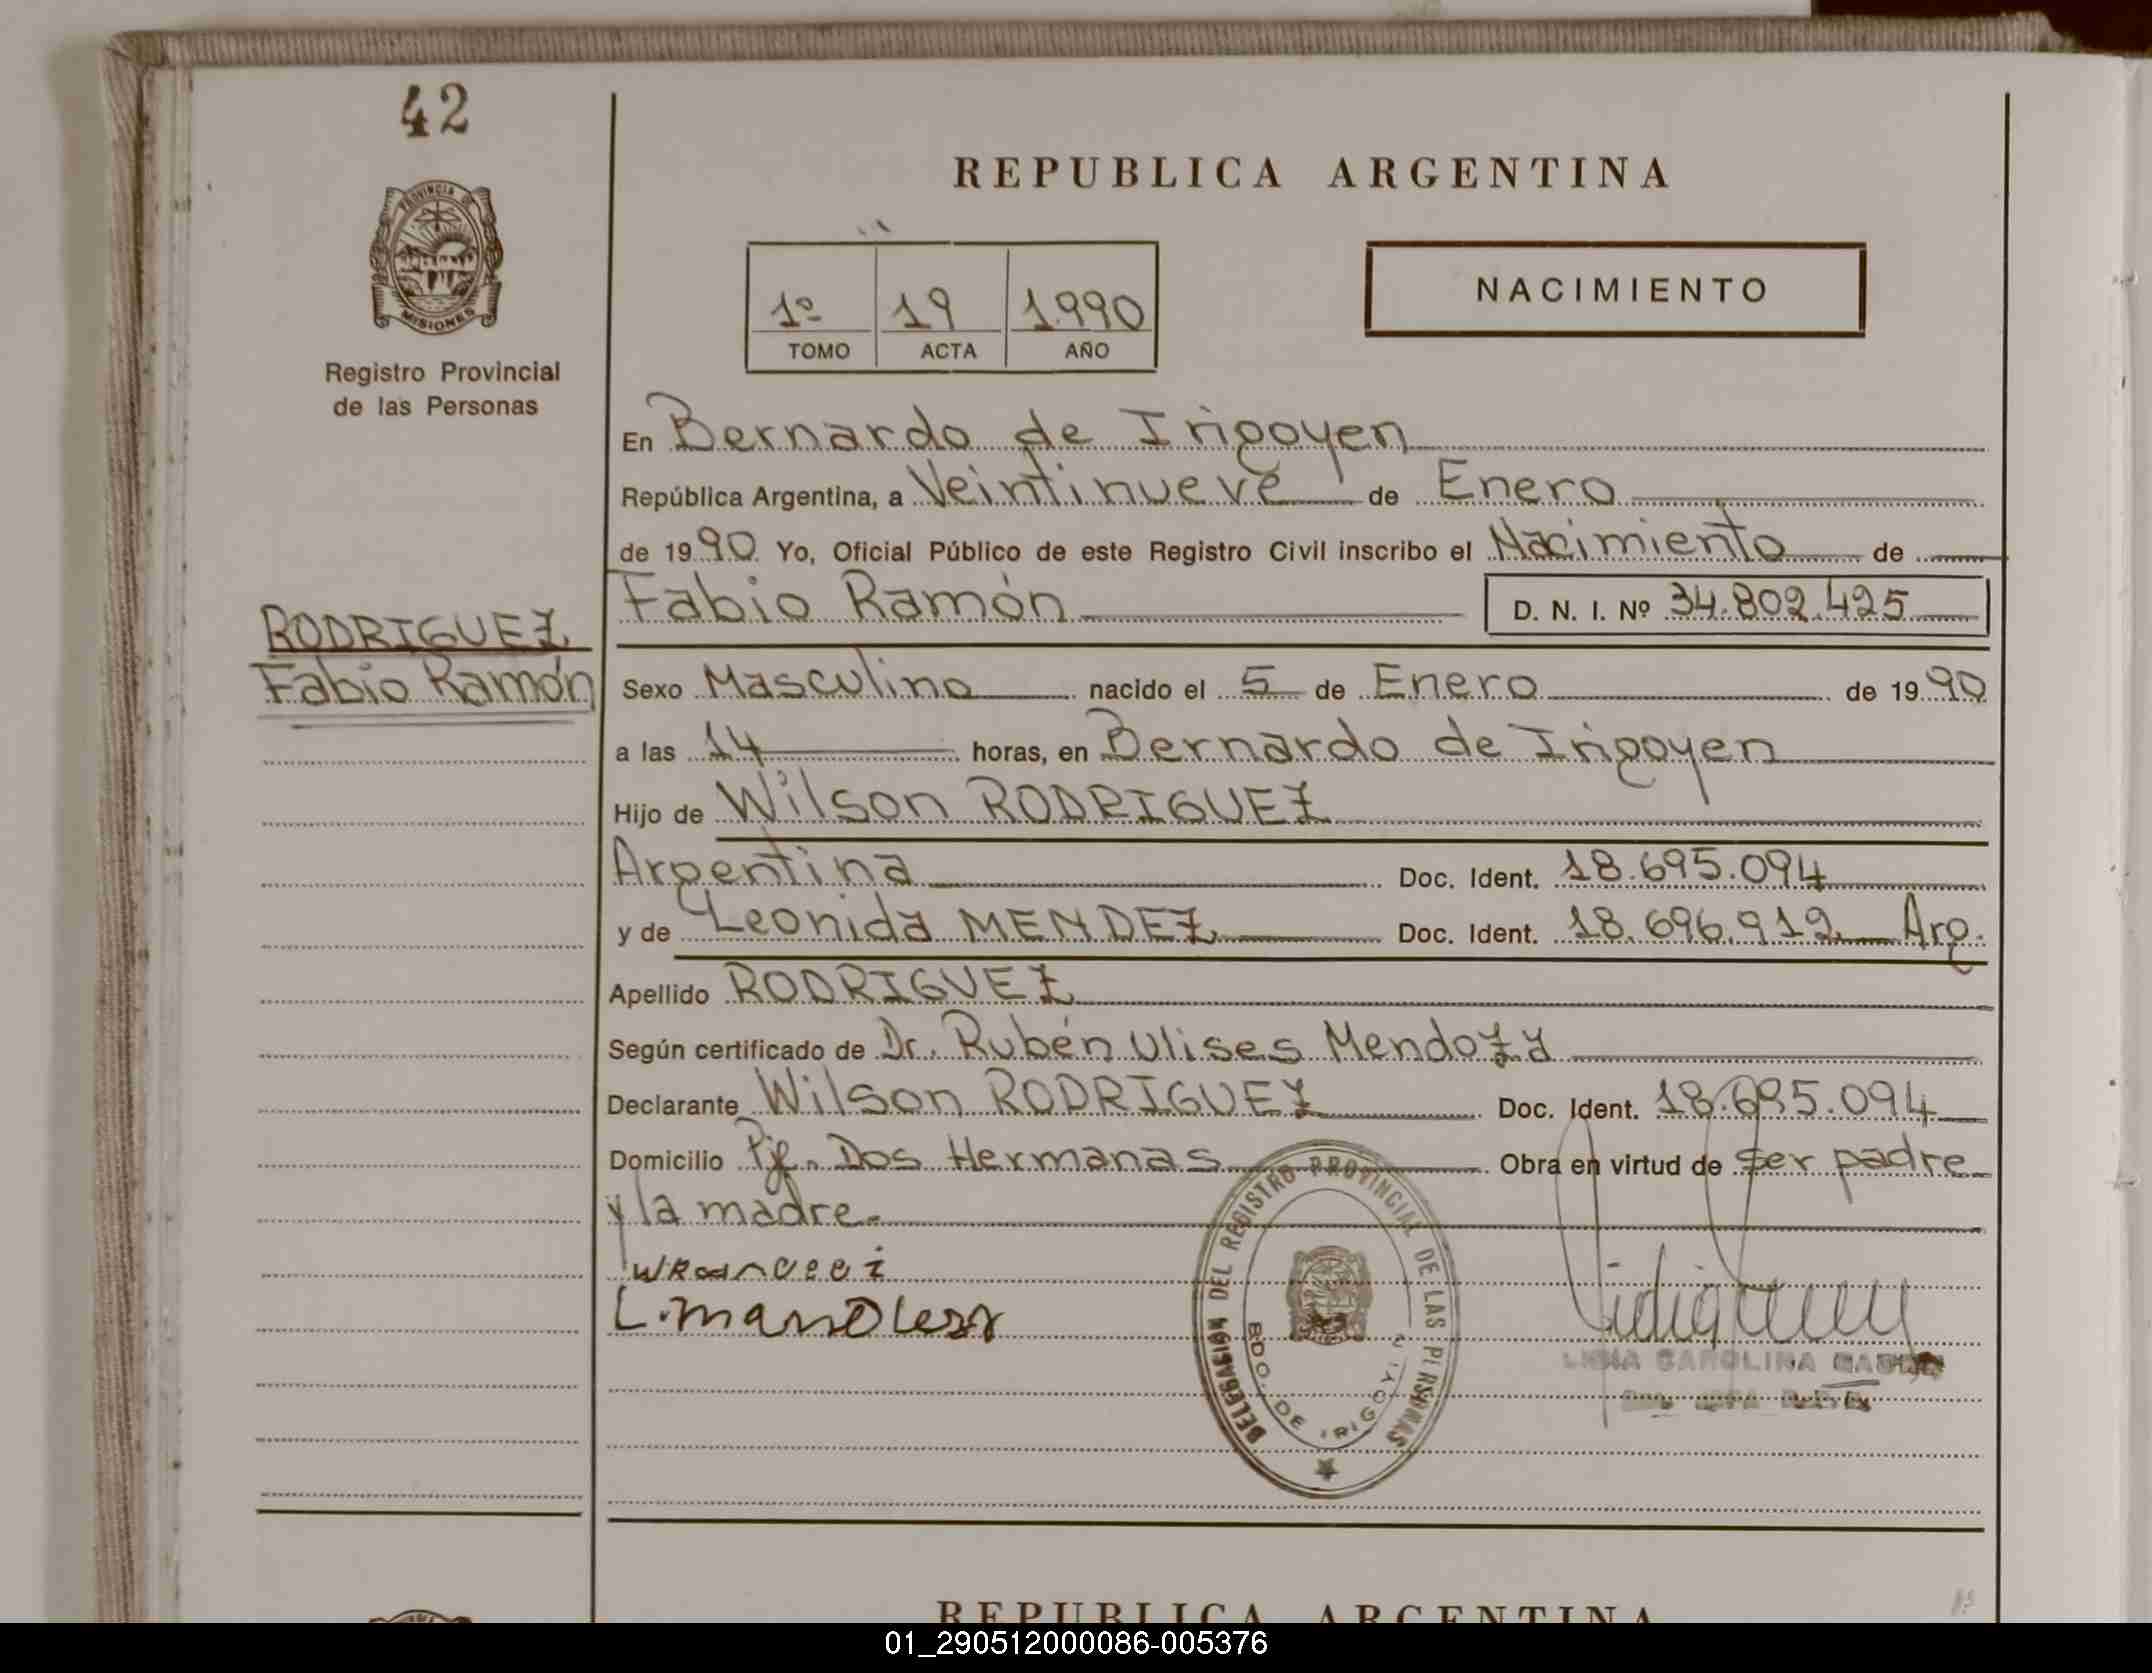 42
REPUBLICA ARGENTINA
PROVINCIA DE
MISIONES
Registro Provincial
de las Personas
1º 19 1.990
TOMO ACTA AÑO
NACIMIENTO
En Bernardo de Irigoyen
República Argentina, a Veintinueve de Enero
de 1990 Yo, Oficial Público de este Registro Civil inscribo el Nacimiento de
Fabio Ramón D. N. I. Nº 34.802.425
RODRIGUEZ
Fabio Ramón
Sexo Masculino nacido el 5 de Enero de 1990
a las 14 horas, en Bernardo de Irigoyen
Hijo de Wilson RODRIGUEZ
Argentina Doc. Ident. 18.695.094
y de Leonida MENDEZ Doc. Ident. 18.696.912 Arg.
Apellido RODRIGUEZ
Según certificado de Dr. Rubén Ulises Mendoza
Declarante Wilson RODRIGUEZ Doc. Ident. 18.695.094
Domicilio Pje. Dos Hermanas Obra en virtud de ser padre
y la madre.
DELEGACION DEL REGISTRO PROVINCIAL DE LAS PERSONAS
BDO. DE IRIGOYEN
CAROLINA
REPUBLICA ARGENTINA
01_290512000086-005376